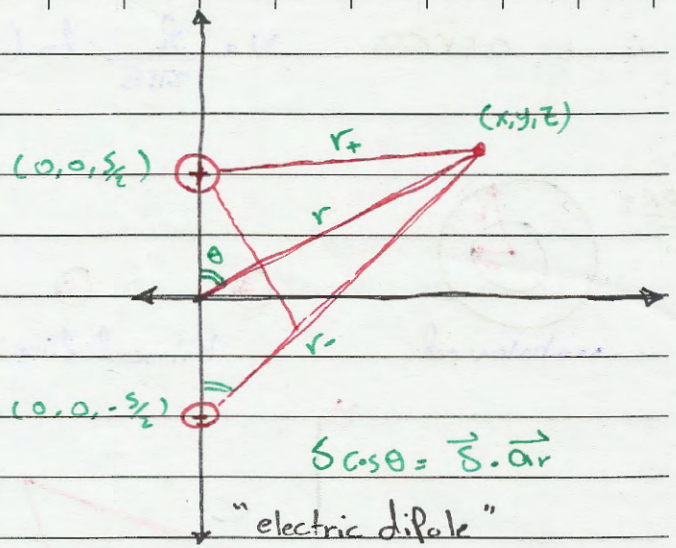 (x,y,z)
r+
(0,0,δ/2)
+
r
θ
r-
(0,0,-δ/2)
-
δ cosθ = δ⃗ . a⃗r
"electric dipole"